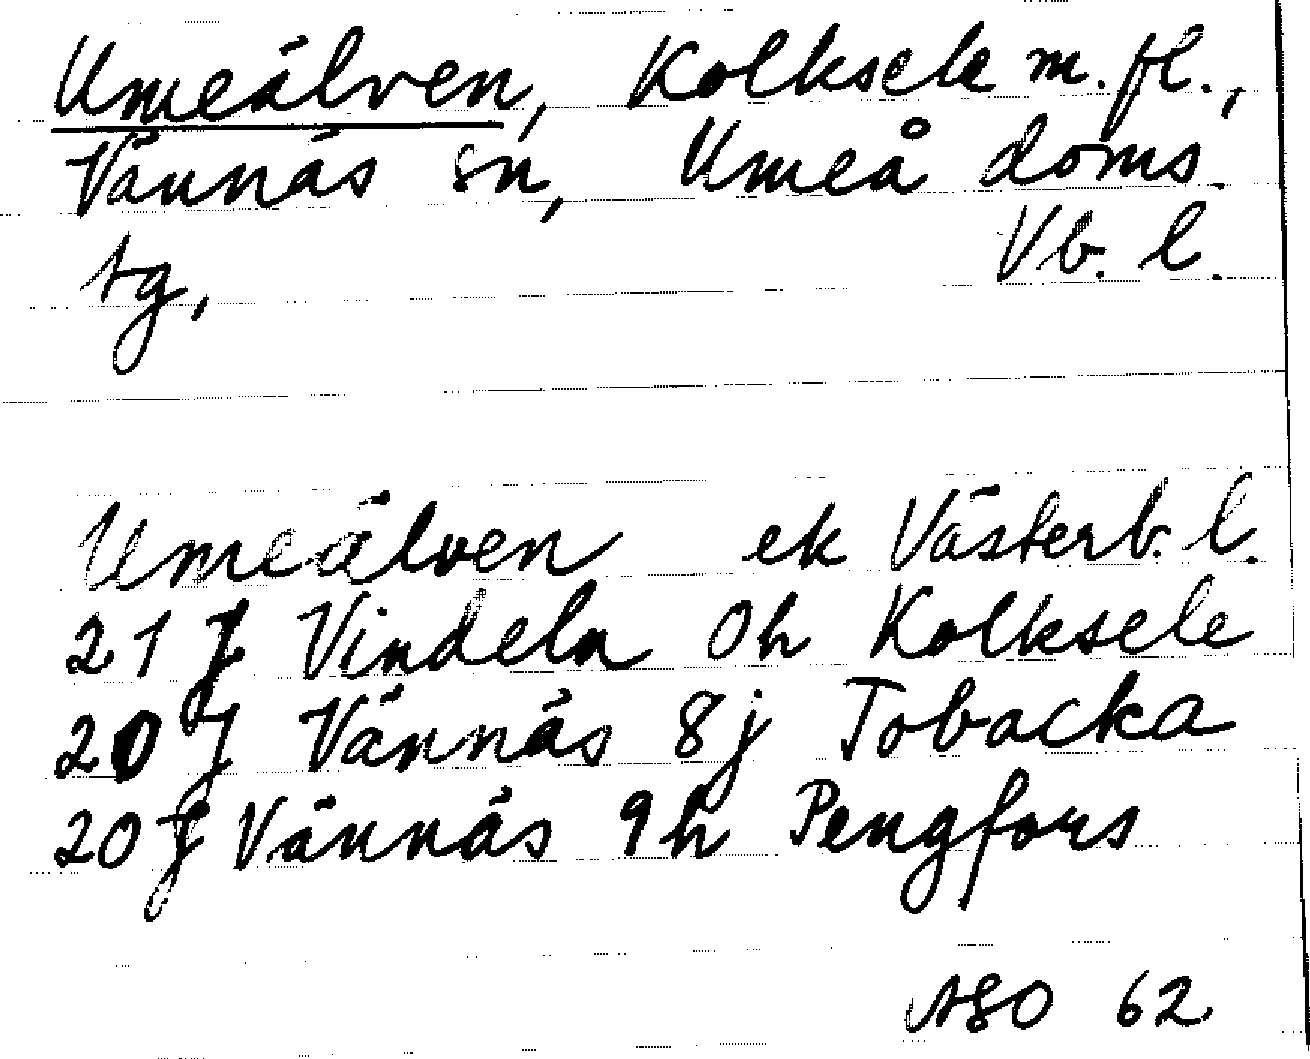 Umeälven, Kolksele m.fl.,
Vännäs sn, Umeå doms.
tg, Vb. l.
Umeälven ek Västerb. l.
21 J Vindeln 0h Kolksele
20 J Vännäs 8j Tobacka
20 J Vännäs 9h Pengfors
ASO 62